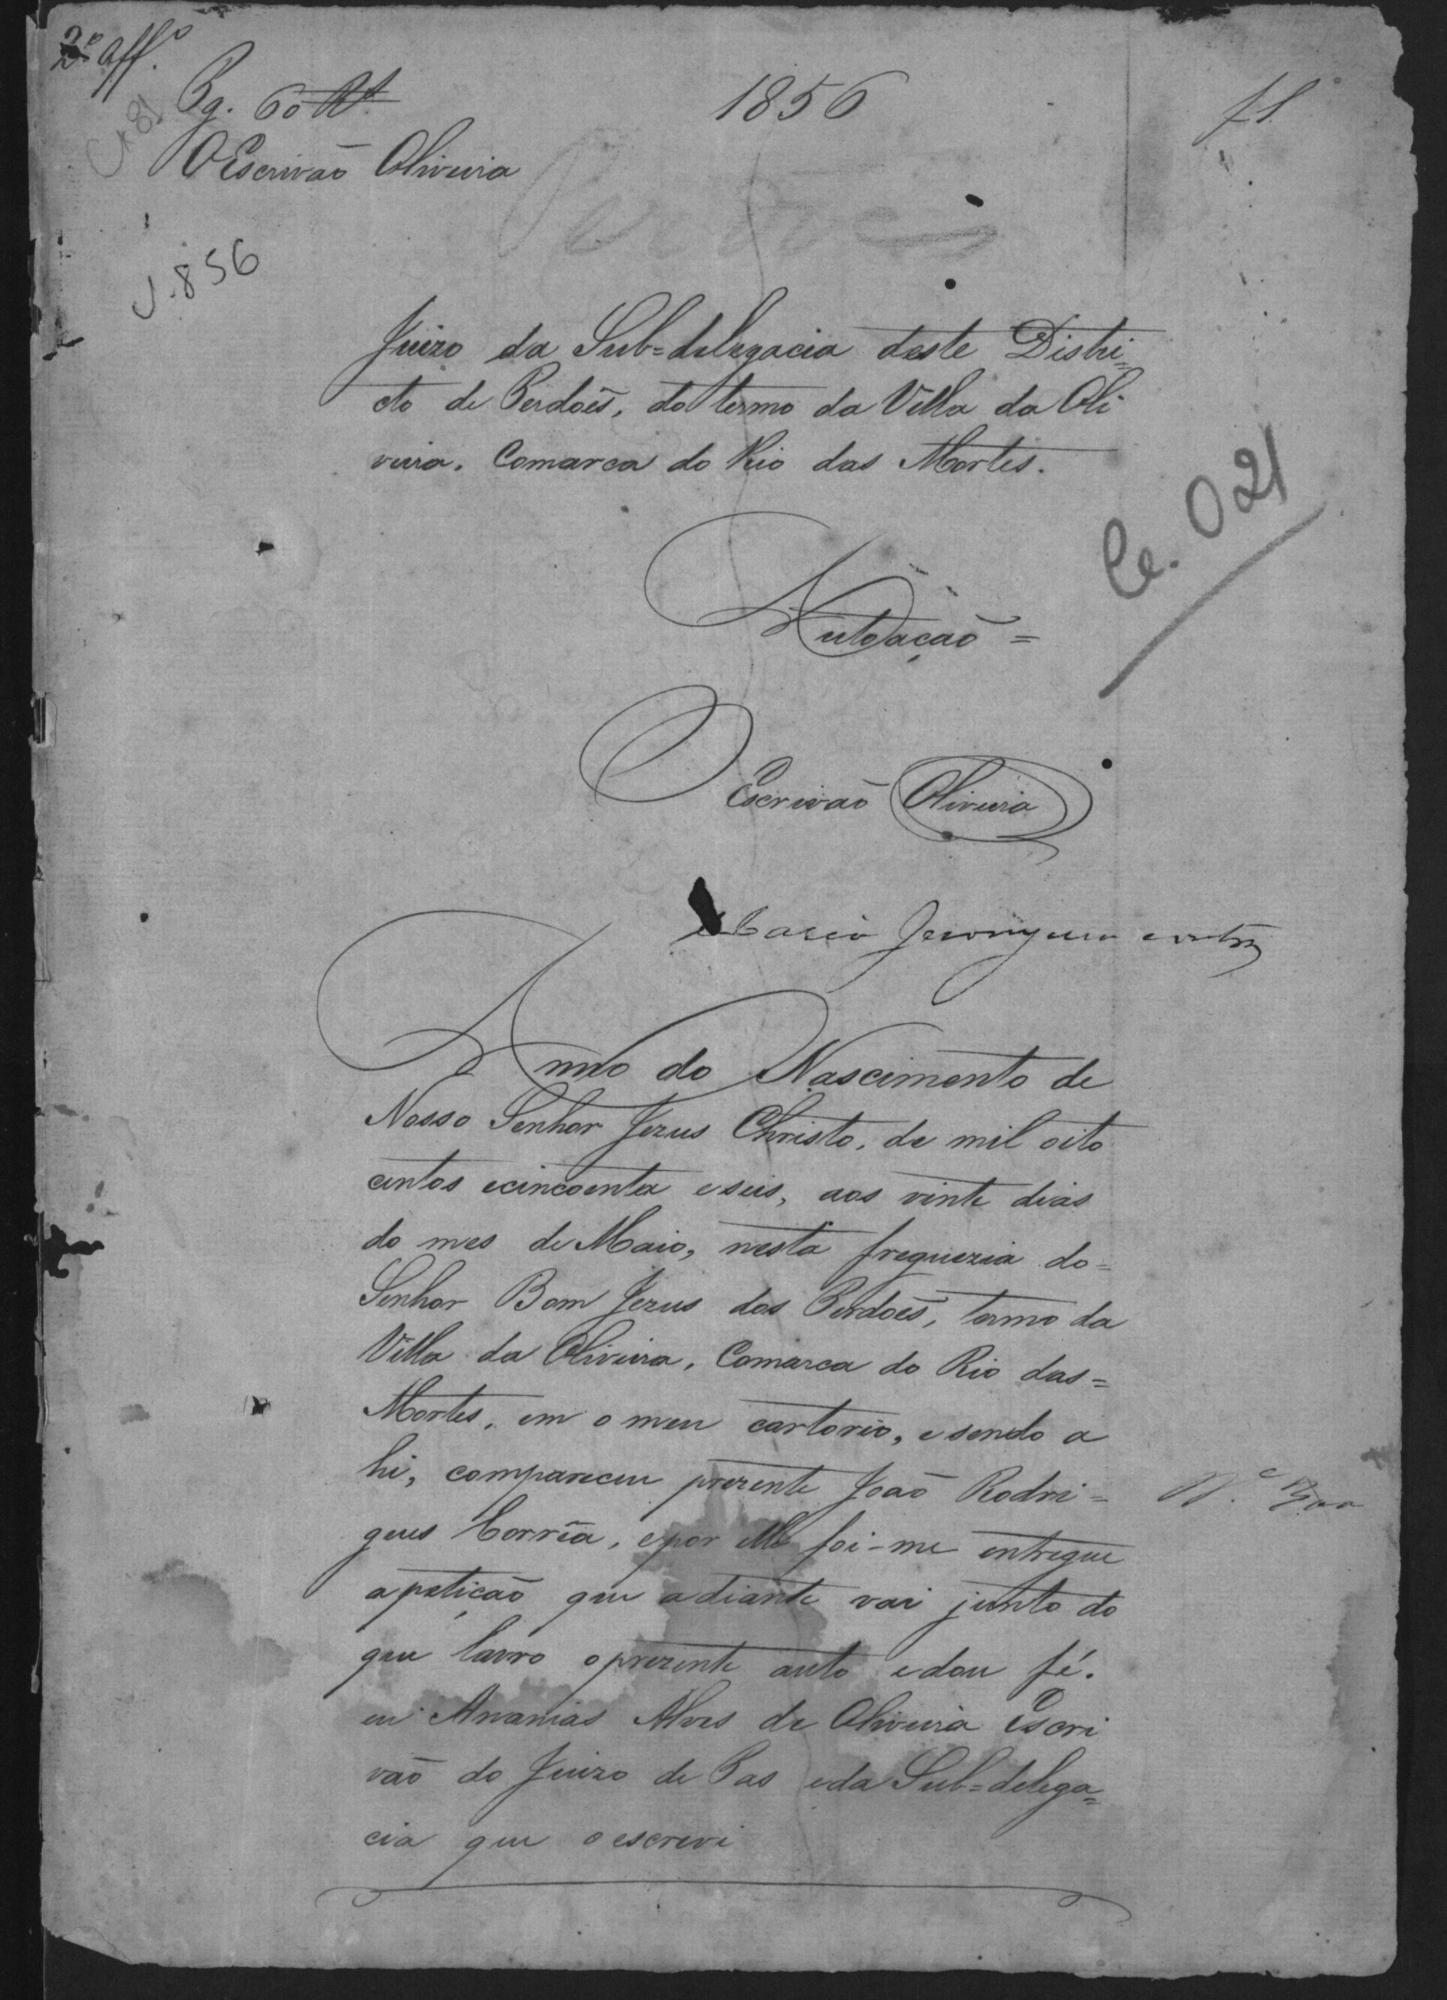 2º Off.º
Cx 81
Pg. 60 Rs
1856
f 1
O Escrivaõ Oliveira
Perdões
1.856
Juizo da Sub=delegacia deste Distri=
cto de Perdoẽs, do termo da Villa da Oli
veira. Comarca do Rio das Mortes.
Ce. 021
Autoaçaõ =
O Escrivaõ Oliveira
Maria Jeronyma
Anno do Nascimento de
Nosso Senhor Jezus Christo, de mil oito
centos ecincoenta eseis, aos vinte dias
do mes de Maio, nesta freguezia do=
Senhor Bom Jezus dos Perdoẽs, termo da
Villa da Oliveira, Comarca do Rio das=
Mortes, em o meu cartorio, e sendo a
hi, compareceu prezente Joaõ Rodri=
gues Corrẽa, epor elle foi-me entregue
apetiçaõ que adiante vai junto do
que lavro oprezente auto edou fé.
eu Ananias Alves de Oliveira Escri
vaõ do Juizo de Pas eda Sub=delega=
cia que o escrevi